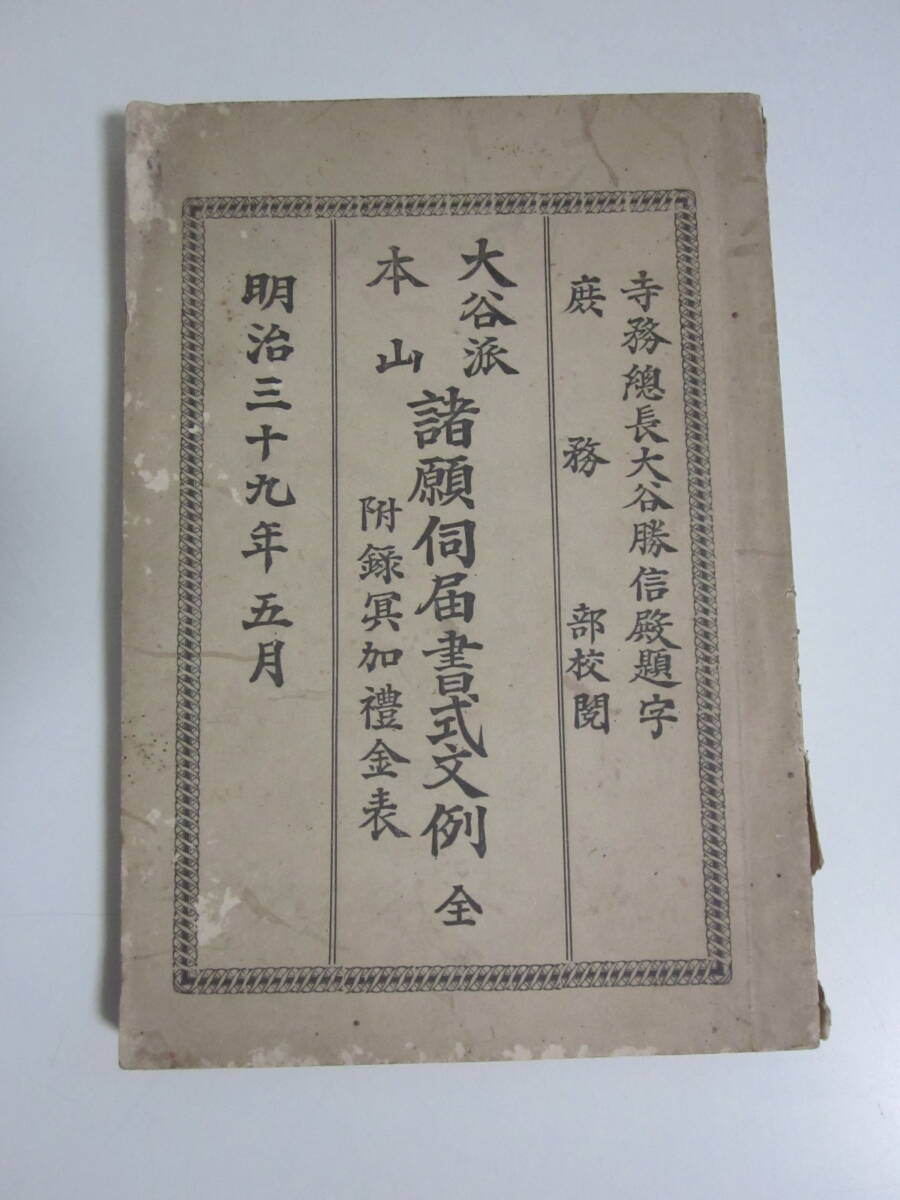 寺務總長大谷勝信殿題字
庶務部校閱
大谷派
本山
諸願伺届書式文例 全
附錄冥加禮金表
明治三十九年五月